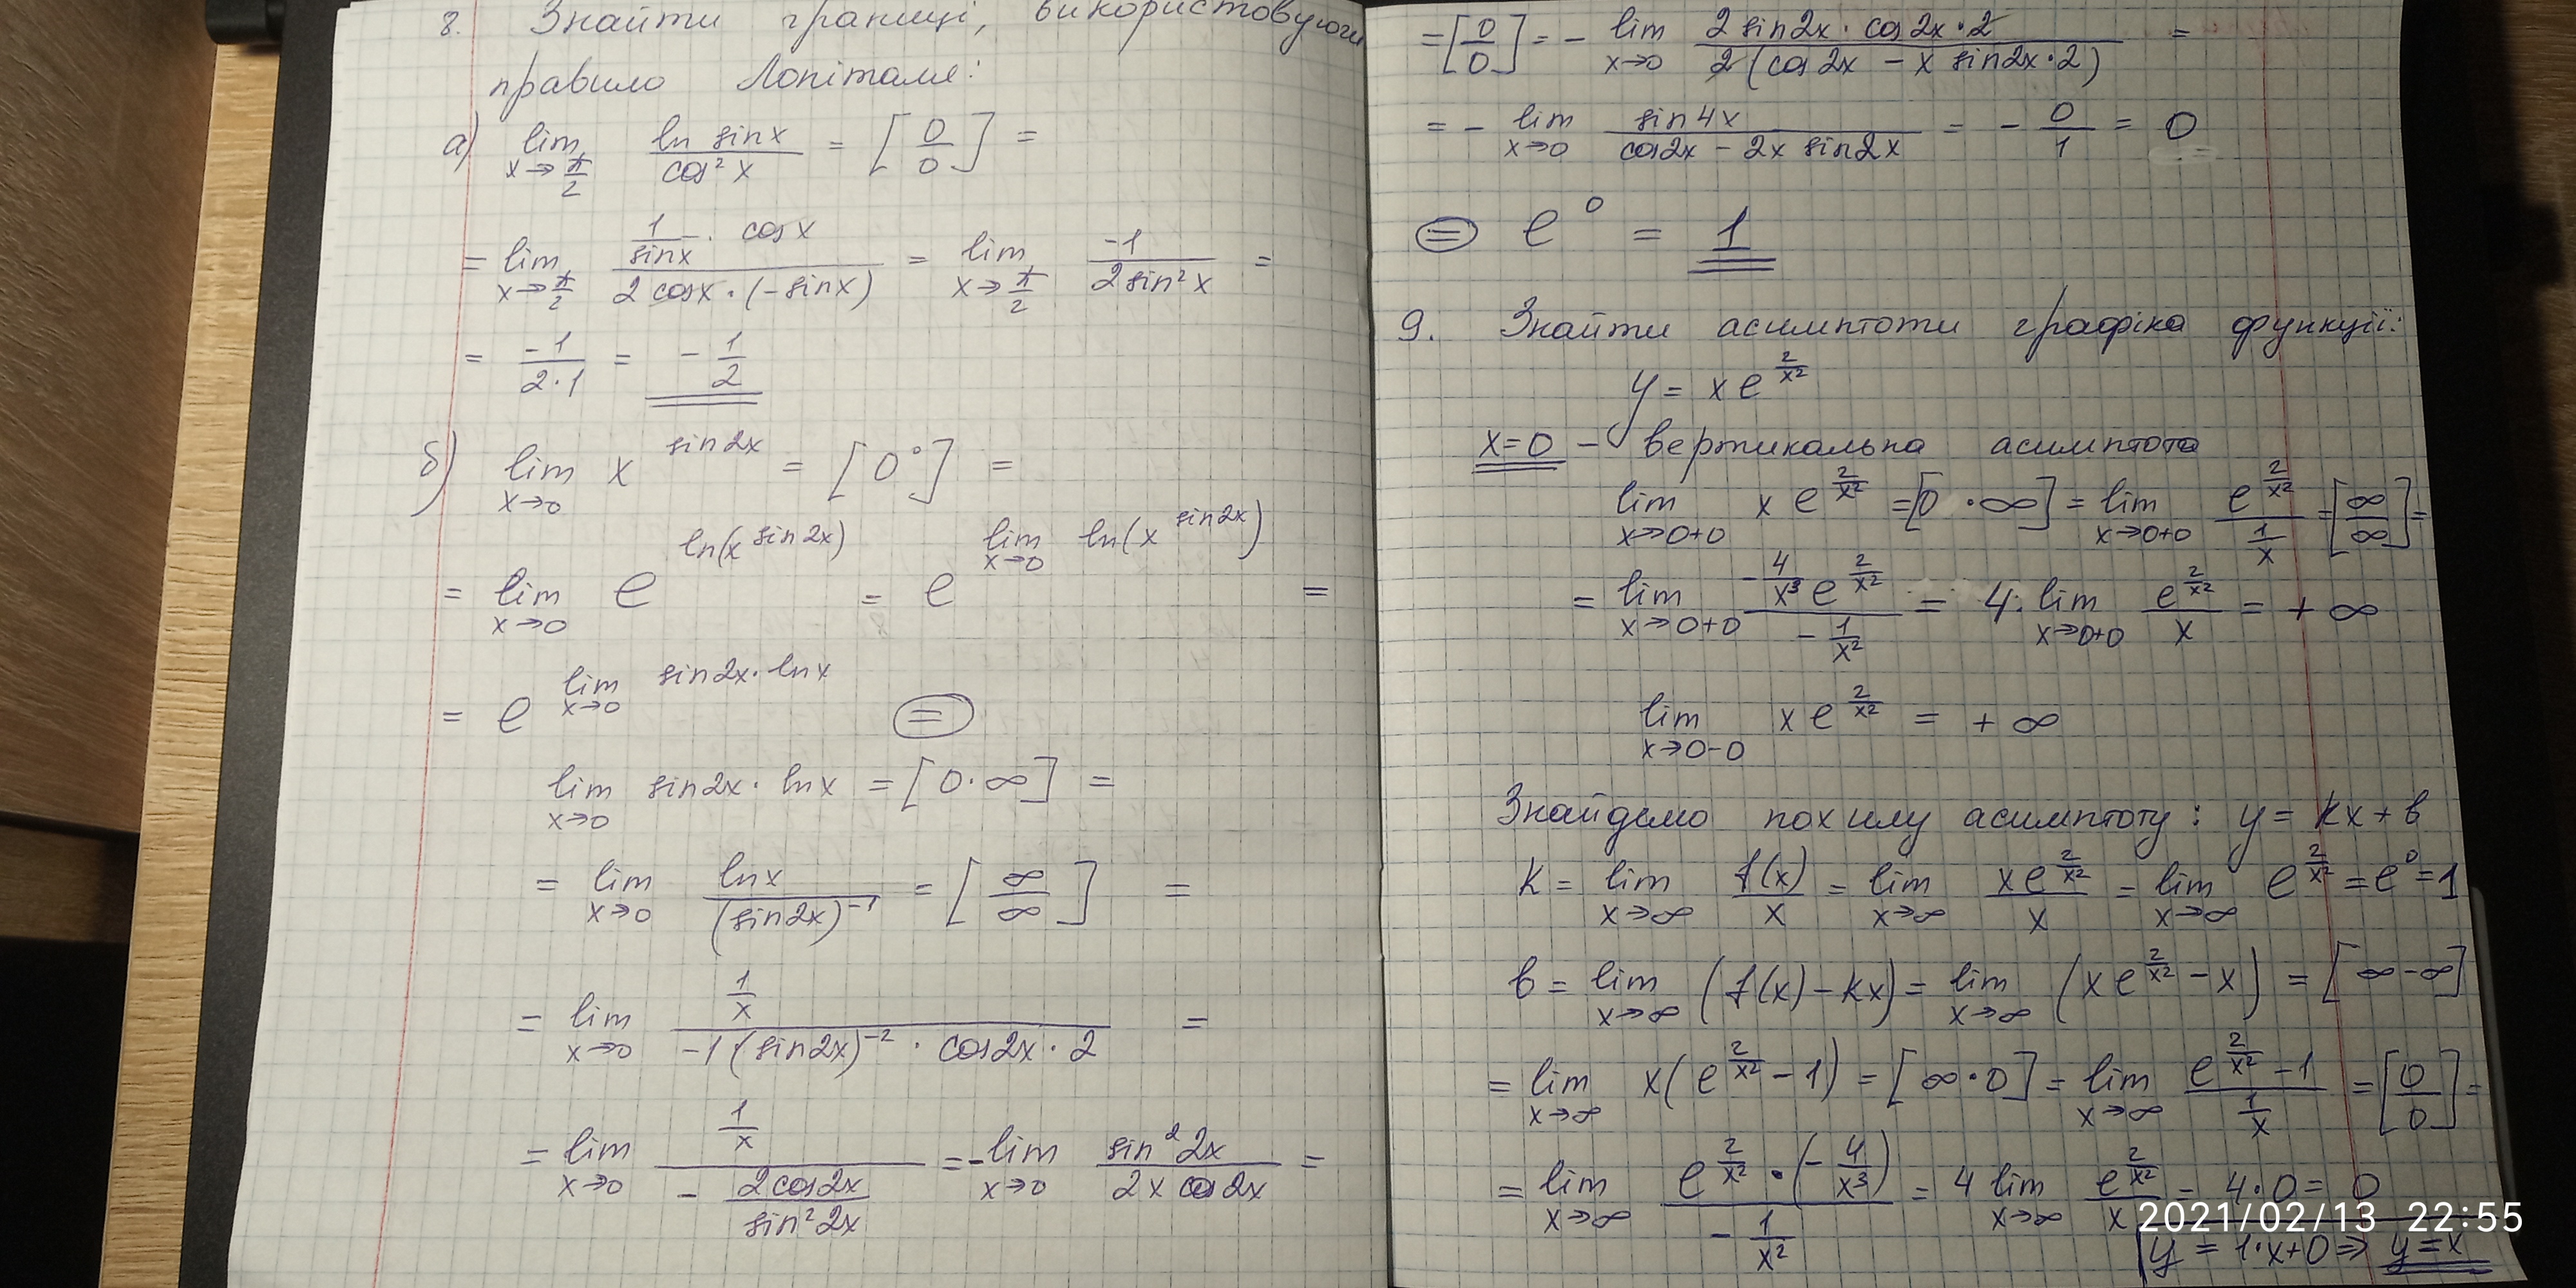 8. Знайти границі, використовуючи
правило Лопіталя:
а) lim x→π/2 ln sinx / cos² x = [0/0] =
= lim x→π/2 (1/sinx · cosx) / (2cosx·(-sinx)) = lim x→π/2 -1 / (2sin²x) =
= -1/(2·1) = -1/2
б) lim x→0 x^(sin2x) = [0°] =
= lim x→0 e^(ln(x^(sin2x))) = e^(lim x→0 ln(x^(sin2x))) =
= e^(lim x→0 sin2x·lnx) (=)
lim x→0 sin2x·lnx = [0·∞] =
= lim x→0 lnx / (sin2x)^(-1) = [∞/∞] =
= lim x→0 (1/x) / (-1·(sin2x)^(-2) · cos2x·2) =
= lim x→0 (1/x) / (- 2cos2x/sin²2x) = - lim x→0 sin²2x / (2x cos2x) =
= [0/0] = - lim x→0 (2sin2x·cos2x·2) / (2(cos2x - x sin2x·2)) =
= - lim x→0 sin4x / (cos2x - 2x sin2x) = - 0/1 = 0
(=) e° = 1
9. Знайти асимптоти графіка функції:
y = xe^(2/x²)
x=0 - вертикальна асимптота
lim x→0+0 xe^(2/x²) = [0·∞] = lim x→0+0 e^(2/x²) / (1/x) = [∞/∞] =
= lim x→0+0 (-4/x³ e^(2/x²)) / (-1/x²) = 4·lim x→0+0 e^(2/x²) / x = +∞
lim x→0-0 xe^(2/x²) = +∞
Знайдемо похилу асимптоту: y = kx+b
k = lim x→∞ f(x)/x = lim x→∞ xe^(2/x²) / x = lim x→∞ e^(2/x²) = e° = 1
b = lim x→∞ (f(x)-kx) = lim x→∞ (xe^(2/x²) - x) = [∞-∞]
= lim x→∞ x(e^(2/x²) - 1) = [∞·0] = lim x→∞ (e^(2/x²) - 1) / (1/x) = [0/0] =
= lim x→∞ (e^(2/x²)·(-4/x³)) / (-1/x²) = 4 lim x→∞ e^(2/x²) / x = 4·0 = 0
y = 1·x+0 ⇒ y=x
2021/02/13 22:55